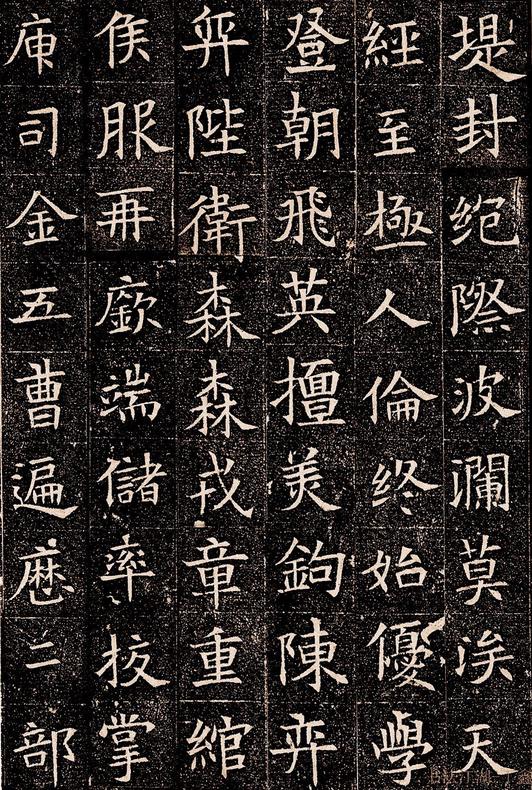 堤封绝際波瀾莫涘天
經至極人倫终始優學
登朝飛英擅美鉤陳弈
弈陛衛森森戎章重綰
侯服再廞端儲率扳掌
庫司金五曹遍歷二部